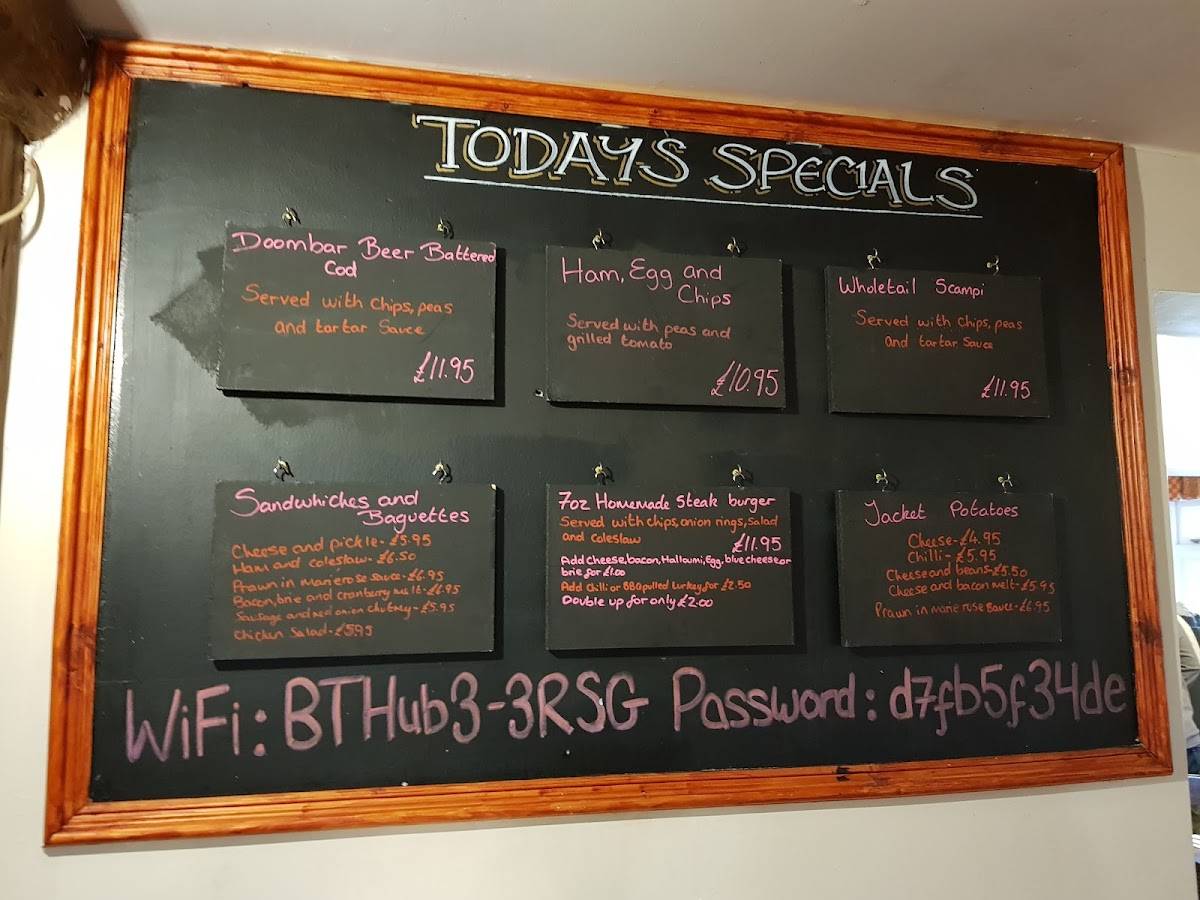 TODAYS SPECIALS
Doombar Beer Battered
Cod
Served with Chips, peas
and tartar Sauce
£11.95
Ham, Egg and
Chips
Served with peas and
grilled tomato
£10.95
Wholetail Scampi
Served with chips, peas
and tartar Sauce
£11.95
Sandwhiches and
Baguettes
Cheese and pickle - £5.95
Ham and coleslaw - £6.50
Prawn in marierose sauce - £6.95
Bacon, brie and cranberry melt - £6.95
Sausage and red onion chutney - £5.95
Chicken Salad - £5.95
7oz Homemade Steak burger
Served with chips, onion rings, salad
and coleslaw
£11.95
Add Cheese, bacon, Halloumi, Egg, blue cheese or
brie for £1.00
Add Chilli or BBQ pulled turkey for £2.50
Double up for only £2.00
Jacket Potatoes
Cheese - £4.95
Chilli - £5.95
Cheese and beans - £5.50
Cheese and bacon melt - £5.95
Prawn in marie rose sauce - £6.95
WiFi: BTHub3-3RSG Password: d7fb5f34de